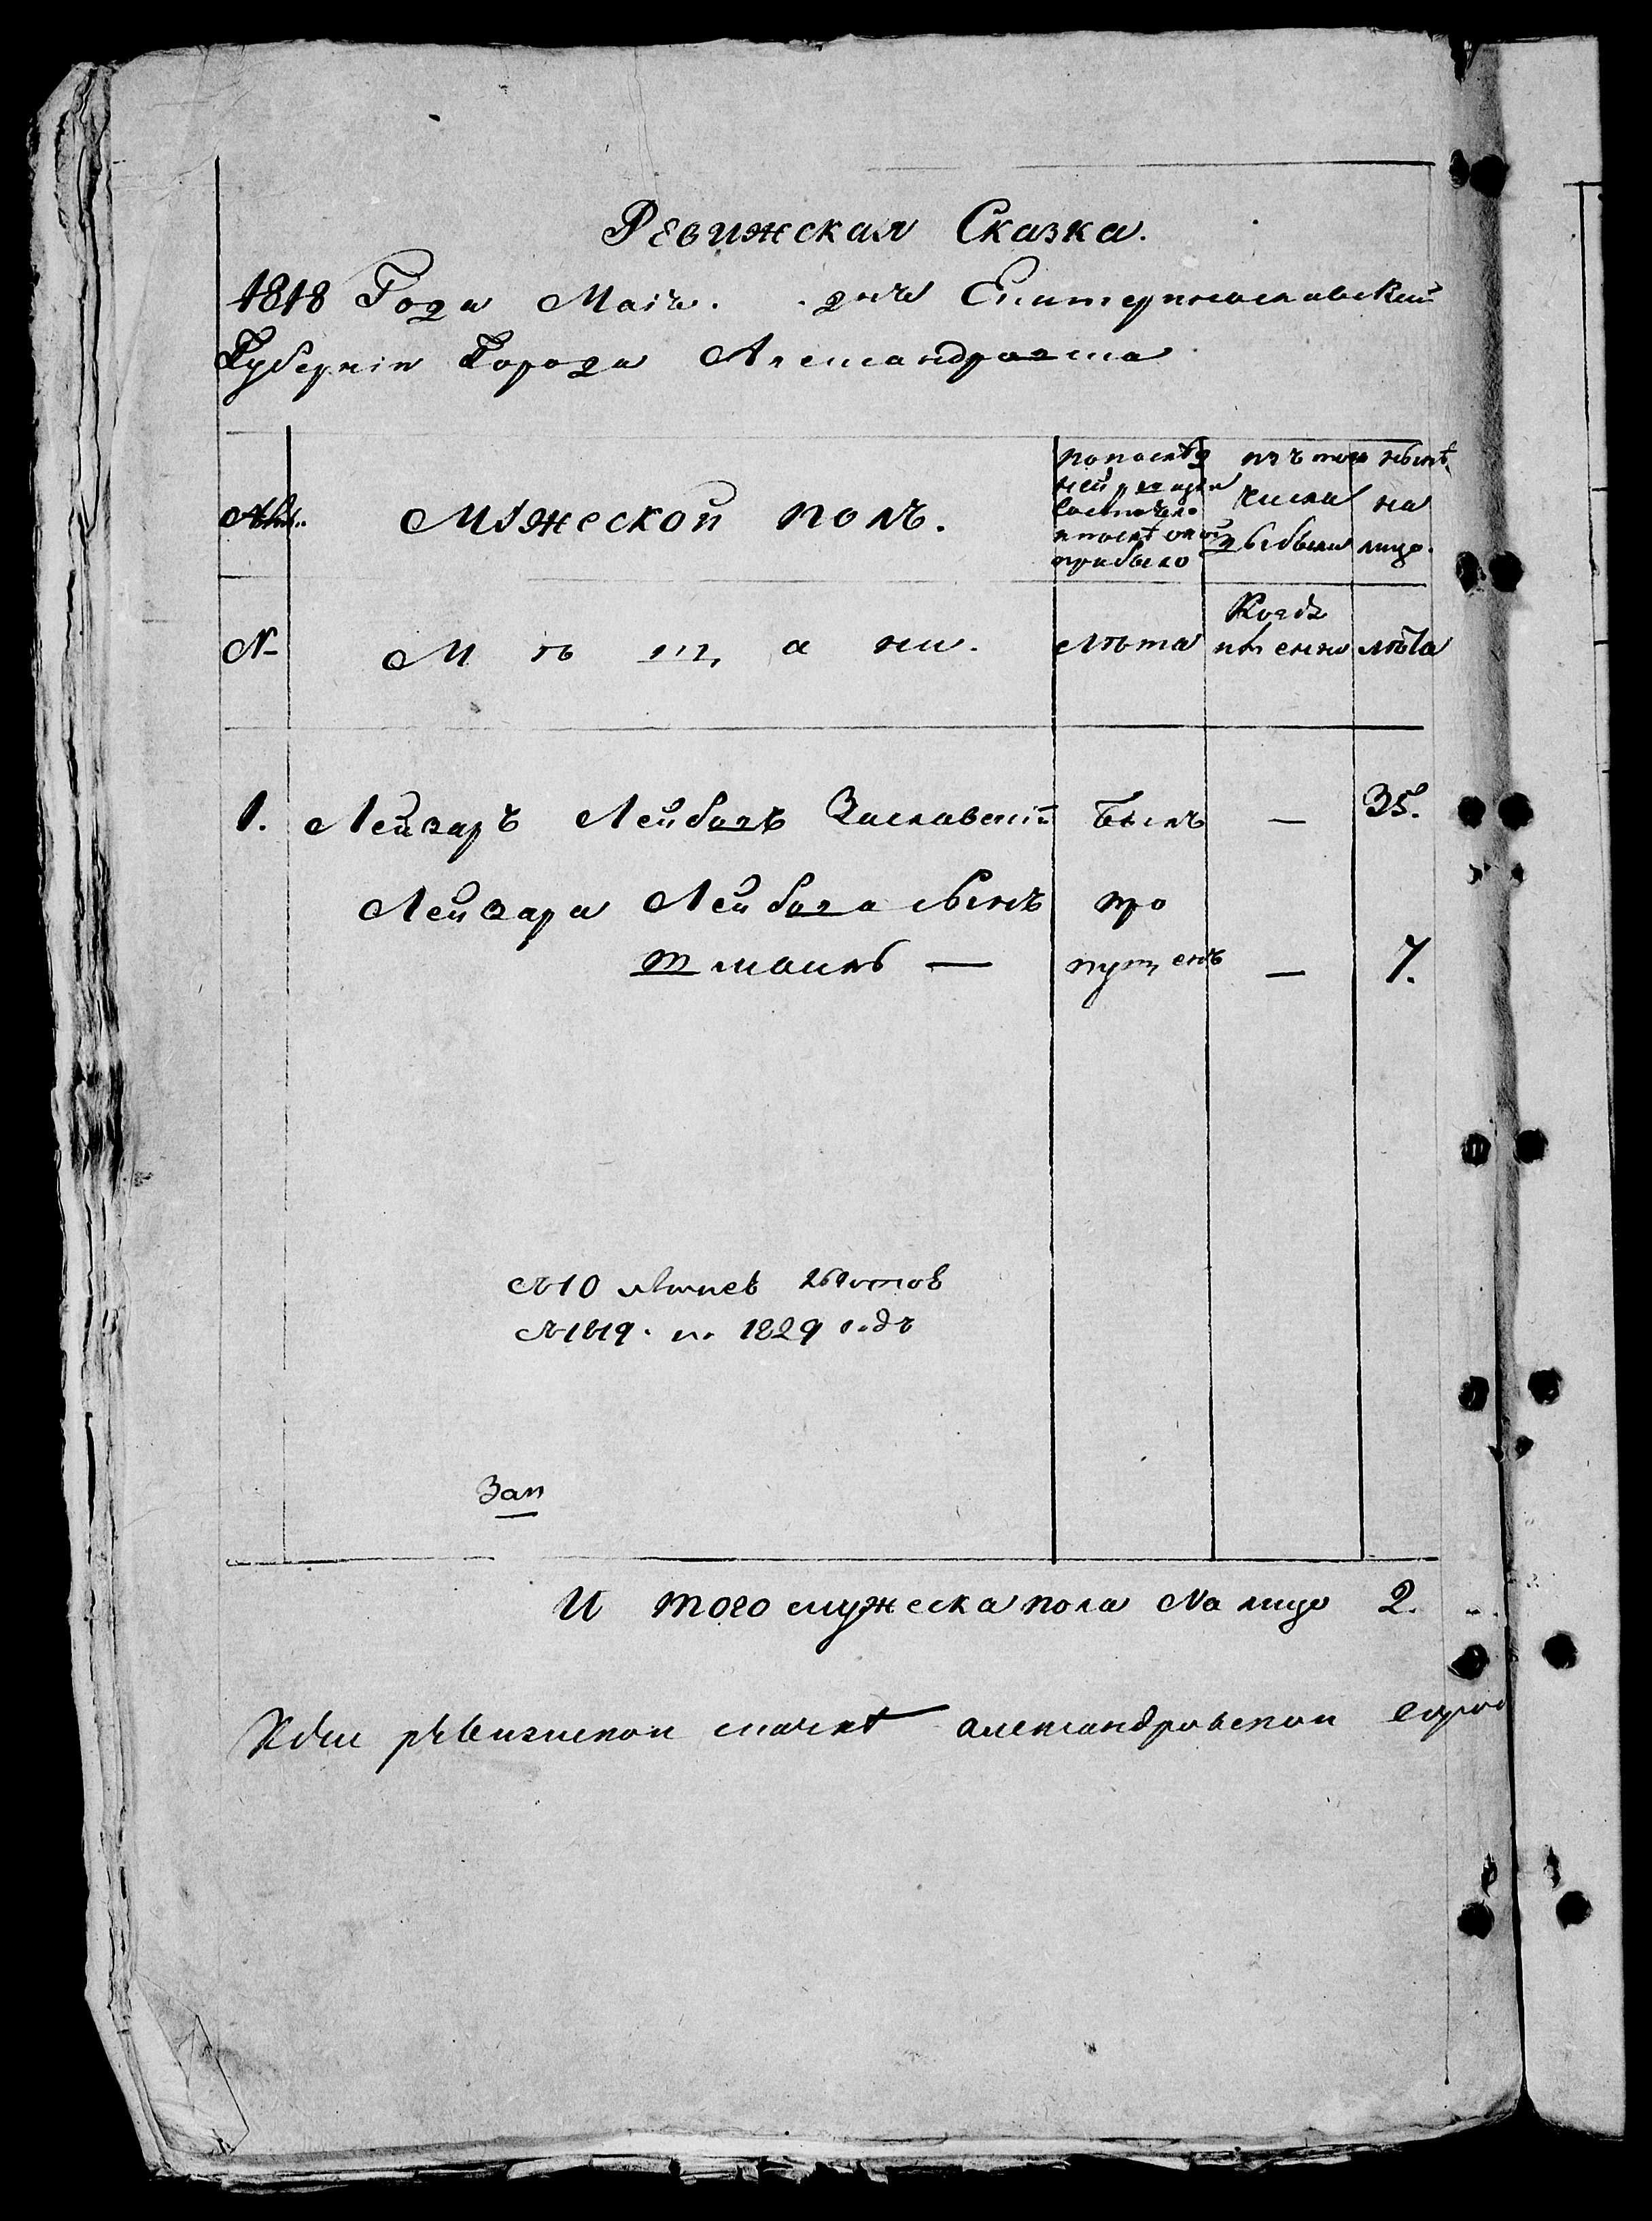 Ревижская Сказка.
1818 Года Маіъ. дня Екатеринославской
Губерніи Города Александровска
Мужескои полъ.
по послѣд
ней ревизіи
состояло
и послѣ оной
прибыло
изъ того
числа
выбыли
нынѣ
на
лицо.
№
М ѣ щ а не.
лѣта
Когда
имѣнно
лѣта
1. Лейзаръ Лейбовъ Заславскій былъ — 35.
Лейзара Лейбова сынъ про
пущенъ — 7.
1819. 1829 годъ
Зап
И того мужеска пола на лицо 2.
александровскои